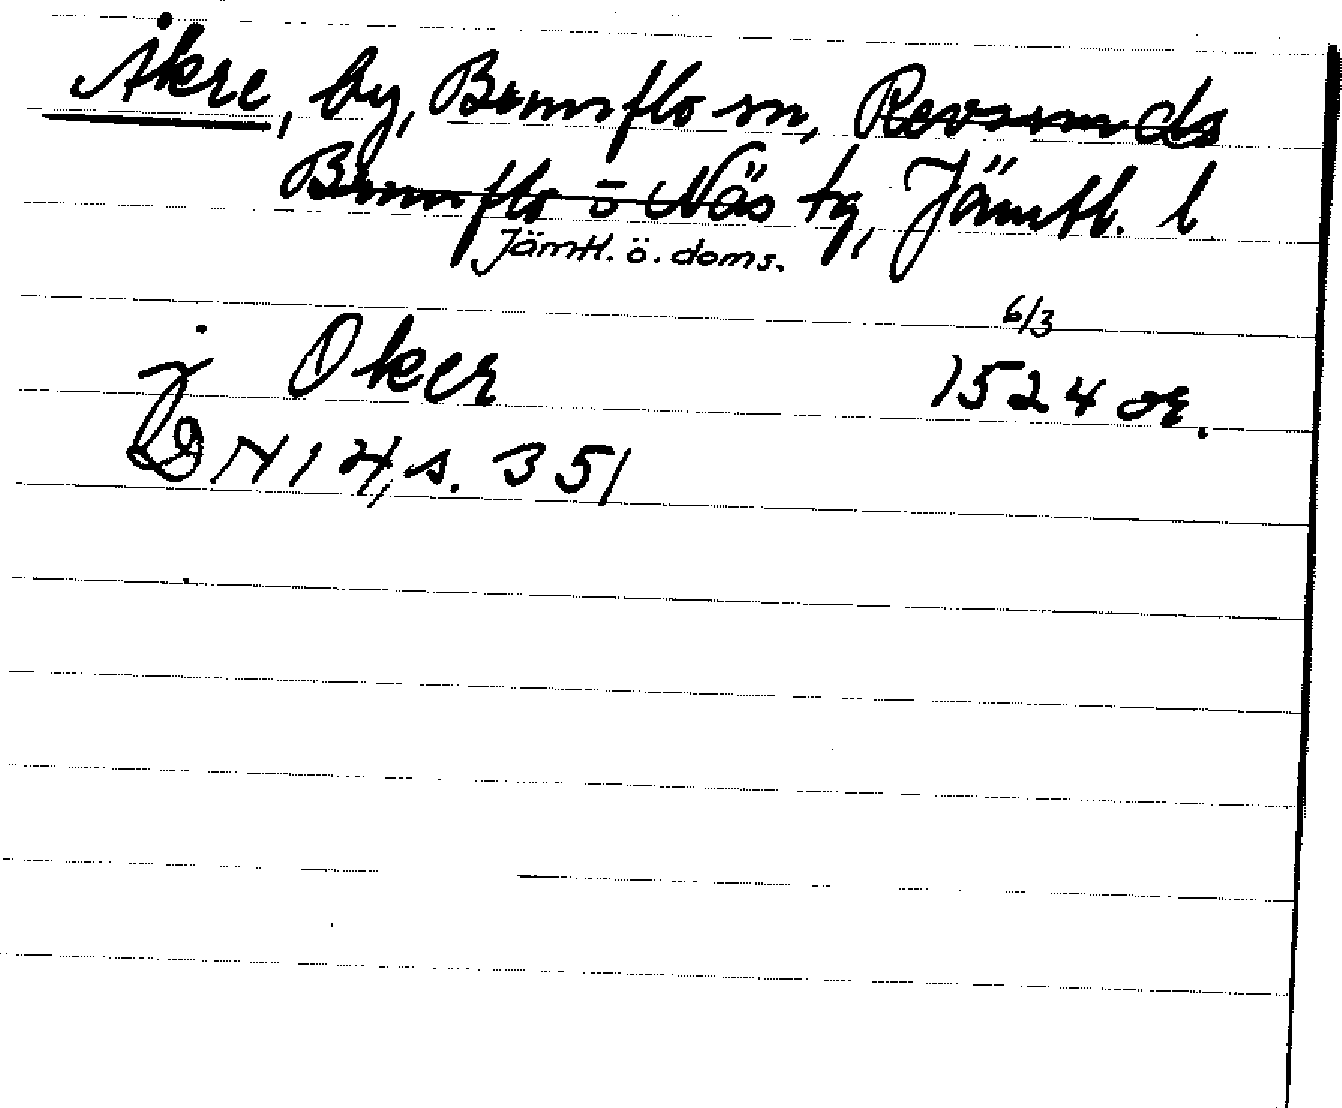 Åkre, by, Brunflo sn, Revsunds
Brunflo o Näs tg, Jämtl. l
Jämtl. ö. doms.
6/3
j Oker 1524 or.
DN 14, s. 351